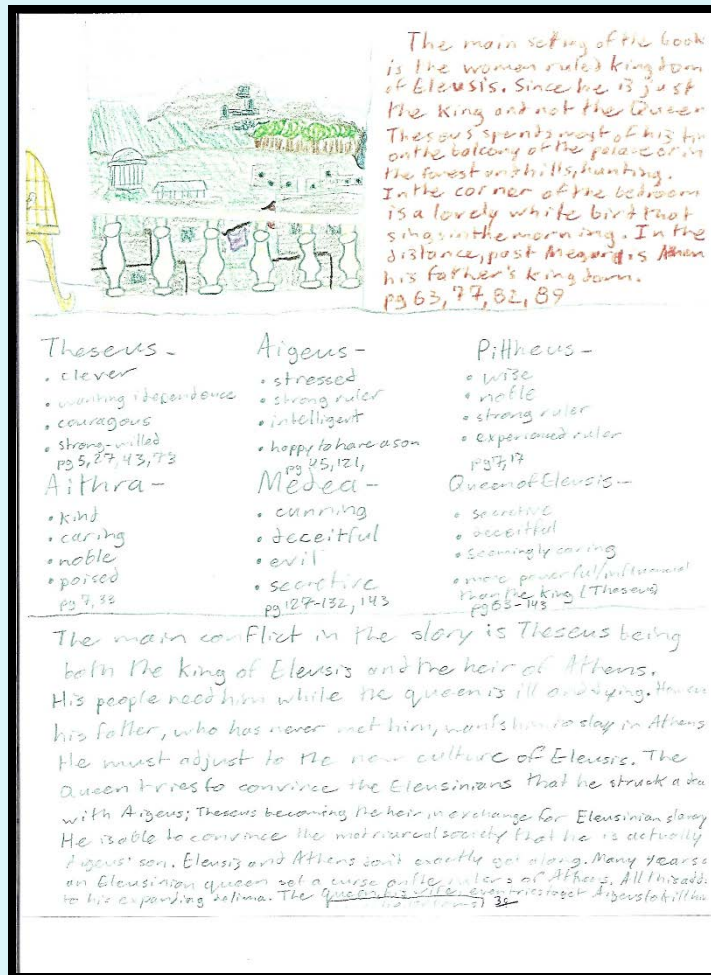 The main setting of the book
is the woman ruled kingdom
of Eleusis. Since he is just
the King and not the Queen
Theseus spends most of his
on the balcony of the palace or in
the forest on hills, hunting.
In the corner of the bedroom
is a lovely white bird that
sings in the morning. In the
distance, past Megara is
his father's kingdom.
pg 63, 77, 82, 89
Theseus-
• clever
• wanting idependence
• couragous
• strong-willed
pg 5, 27, 43, 73
Aigeus-
• stressed
• strong ruler
• intelligent
• happy to have a son
pg 45, 121,
Pittheus-
• wise
• noble
• strong ruler
• experienced ruler
pg 7, 17
Aithra-
• kind
• caring
• noble
• poised
pg 7, 33
Medea-
• cunning
• deceitful
• evil
• secretive
pg 127-132, 143
Queen of Eleusis-
• secretive
• deceitful
• seemingly caring
• more powerful/influencial
than the king (Theseus)
pg 63-143
The main conflict in the story is Theseus being
both the king of Eleusis and the heir of Athens.
His people need him while the queen is ill and dying.
his father, who has never met him, wants him to stay in Athens
He must adjust to the new culture of Eleusis. The
Queen tries to convince the Eleusinians that he struck a
with Aigeus; Theseus becoming the heir in exchange for Eleusinian slavery
He is able to convince the matriarcal society that he is actually
Aigeus' son. Eleusis and Athens don't exactly get along. Many years
an Eleusinian queen set a curse on the rulers of Athens. All this
to his expanding delima. The queen, his wife, even tries to get Aigeus to kill